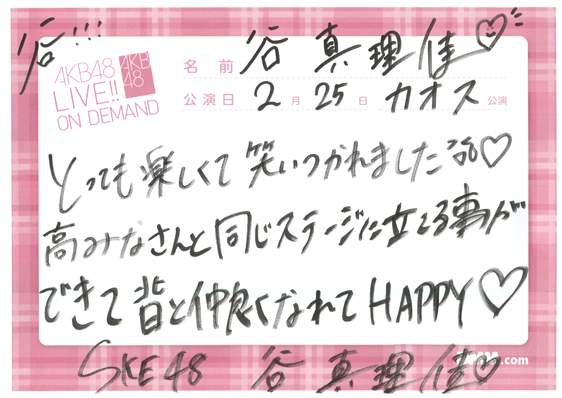 谷!!!
AKB48
LIVE!!
ON DEMAND
AKB
48
名前 谷 真理佳♡
公演日 2月25日 カオス 公演
とっても楽しくて笑いつかれました♡
高みなさんと同じステージに立てる事が
できて皆と仲良くなれてHAPPY♡
SKE48 谷 真理佳♡
.com